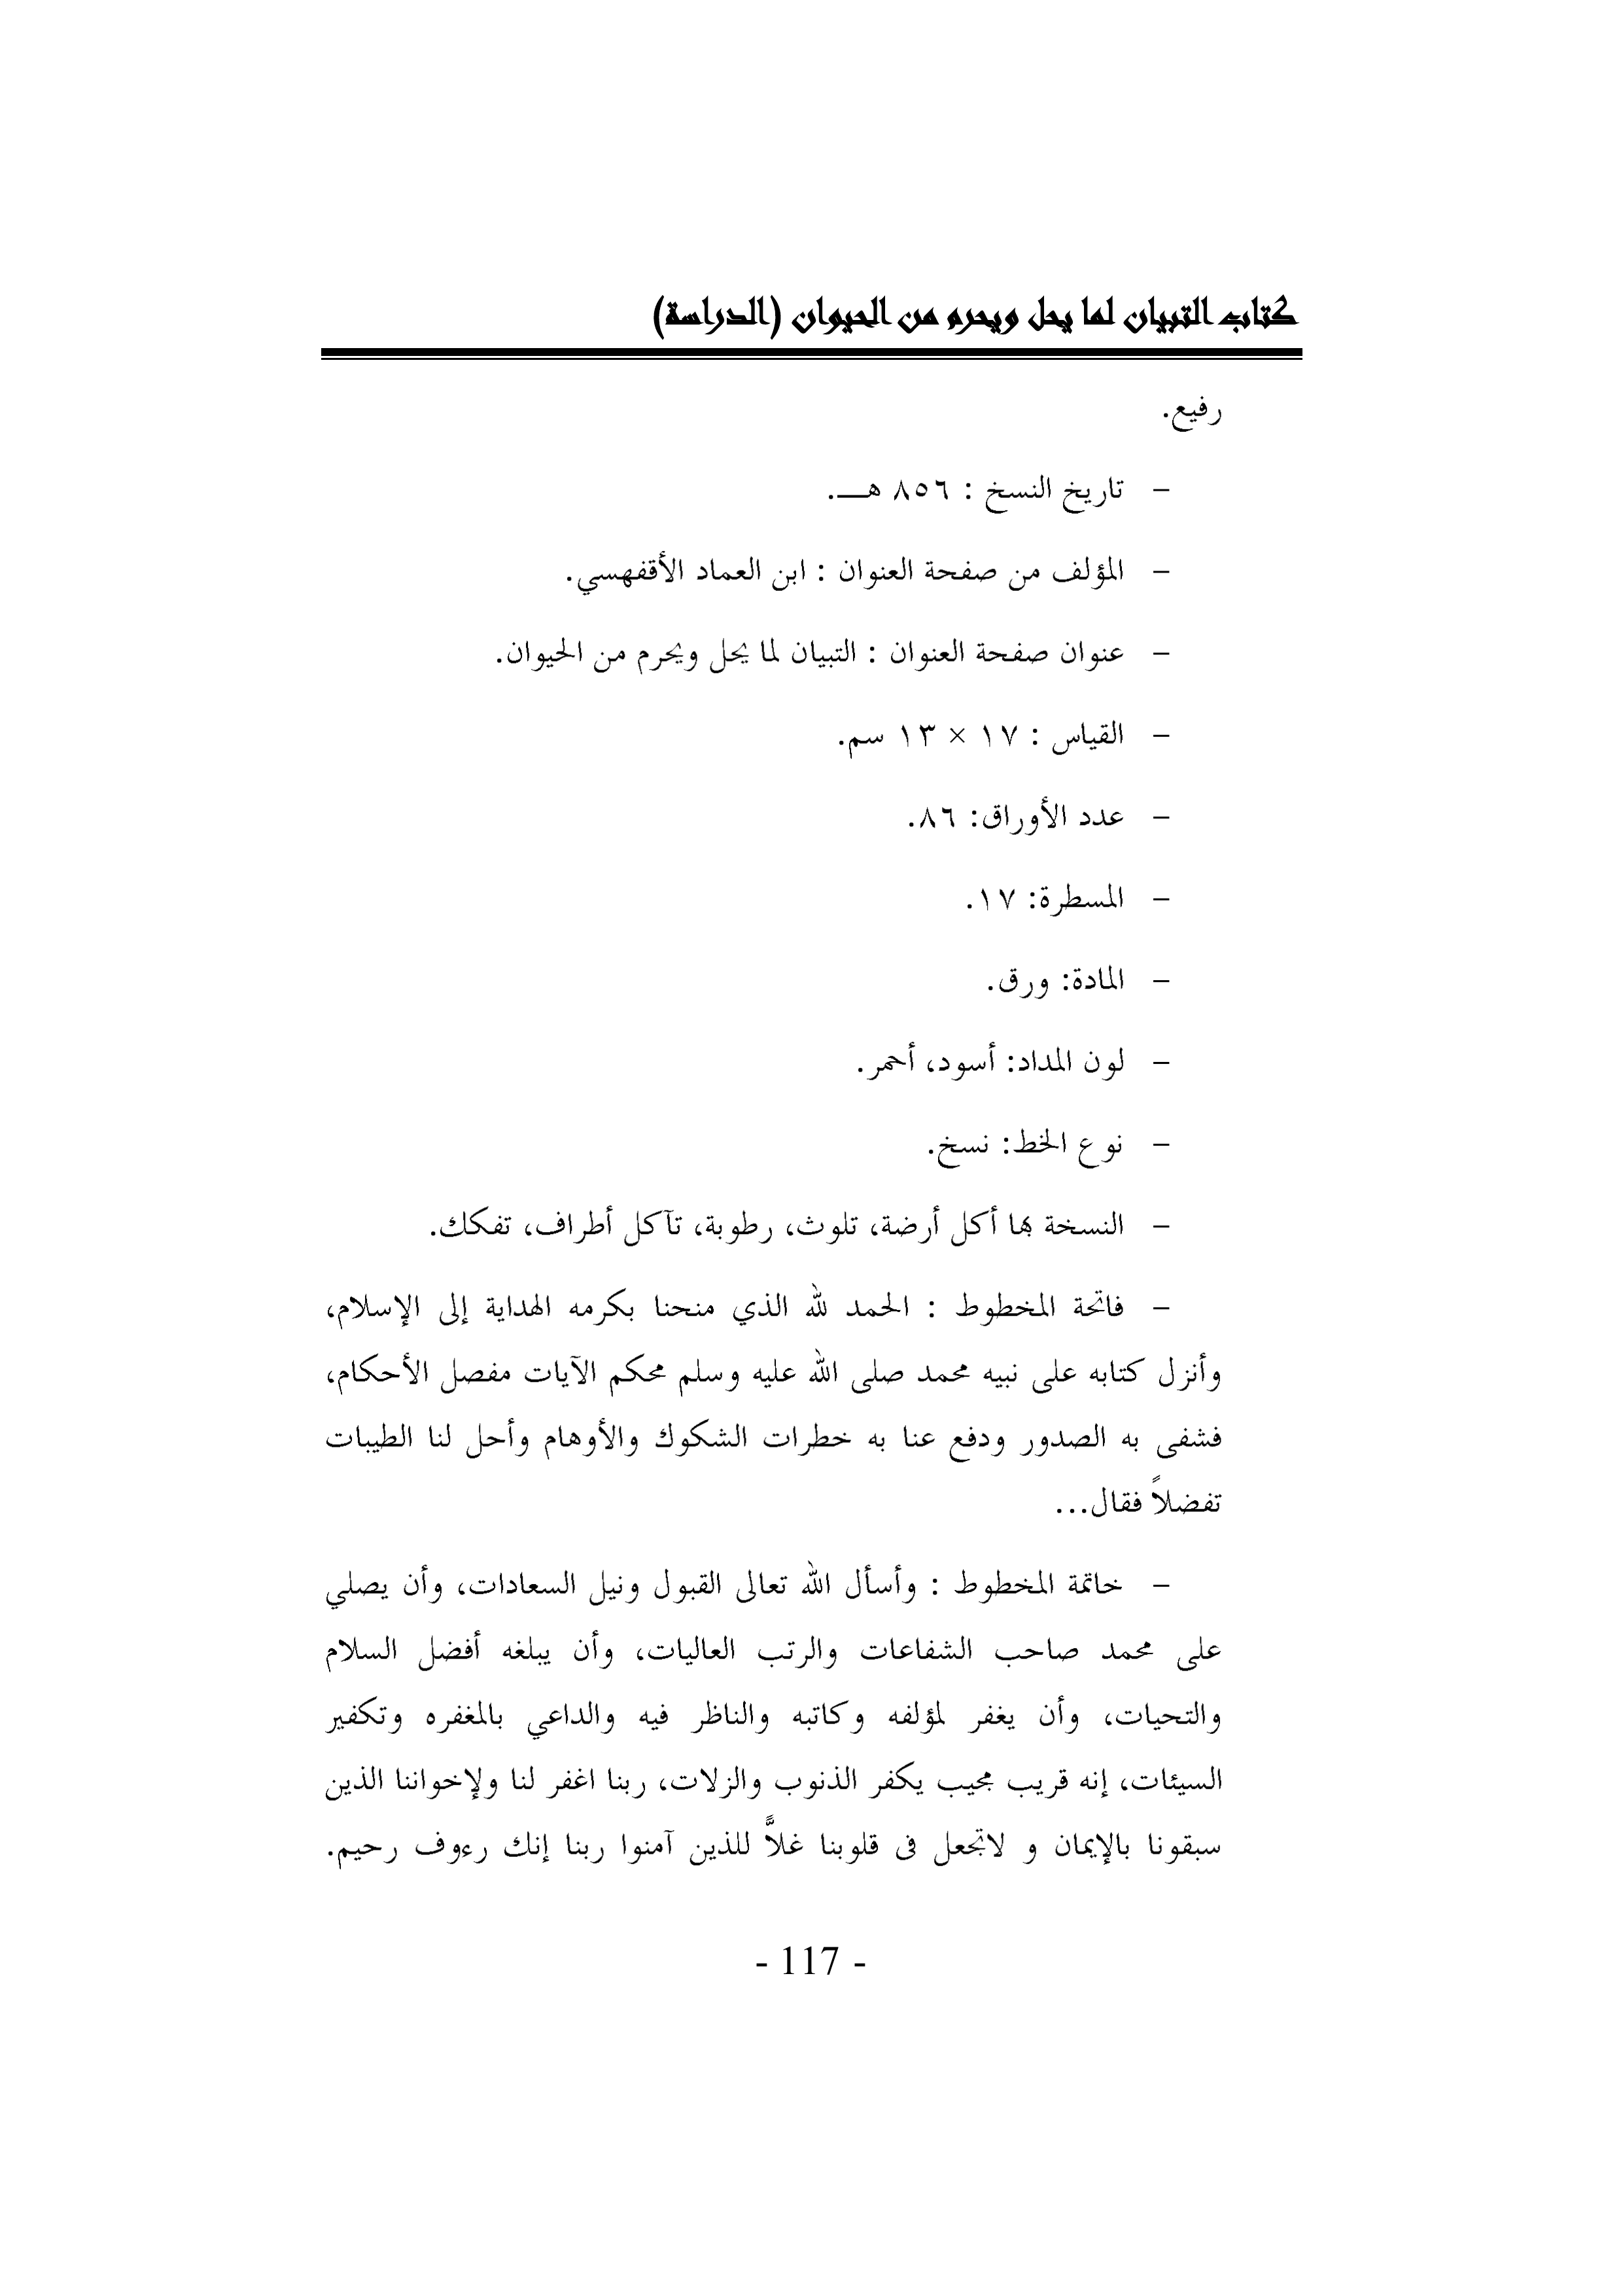 كتاب التبيان لما يحل ويحرم من الحيوان (الدراسة)
رفيع.
– تاريخ النسخ : ٨٥٦ هـــ.
– المؤلف من صفحة العنوان : ابن العماد الأقفهسي.
– عنوان صفحة العنوان : التبيان لما يحل ويحرم من الحيوان.
– القياس : ١٧ × ١٣ سم.
– عدد الأوراق: ٨٦.
– المسطرة: ١٧.
– المادة: ورق.
– لون المداد: أسود، أحمر.
– نوع الخط: نسخ.
– النسخة بها أكل أرضة، تلوث، رطوبة، تآكل أطراف، تفكك.
– فاتحة المخطوط : الحمد لله الذي منحنا بكرمه الهداية إلى الإسلام،
وأنزل كتابه على نبيه محمد صلى الله عليه وسلم محكم الآيات مفصل الأحكام،
فشفى به الصدور ودفع عنا به خطرات الشكوك والأوهام وأحل لنا الطيبات
تفضلاً فقال...
– خاتمة المخطوط : وأسأل الله تعالى القبول ونيل السعادات، وأن يصلي
على محمد صاحب الشفاعات والرتب العاليات، وأن يبلغه أفضل السلام
والتحيات، وأن يغفر لمؤلفه وكاتبه والناظر فيه والداعي بالمغفره وتكفير
السيئات، إنه قريب مجيب يكفر الذنوب والزلات، ربنا اغفر لنا ولإخواننا الذين
سبقونا بالإيمان و لاتجعل فى قلوبنا غلاًّ للذين آمنوا ربنا إنك رءوف رحيم.
- 117 -